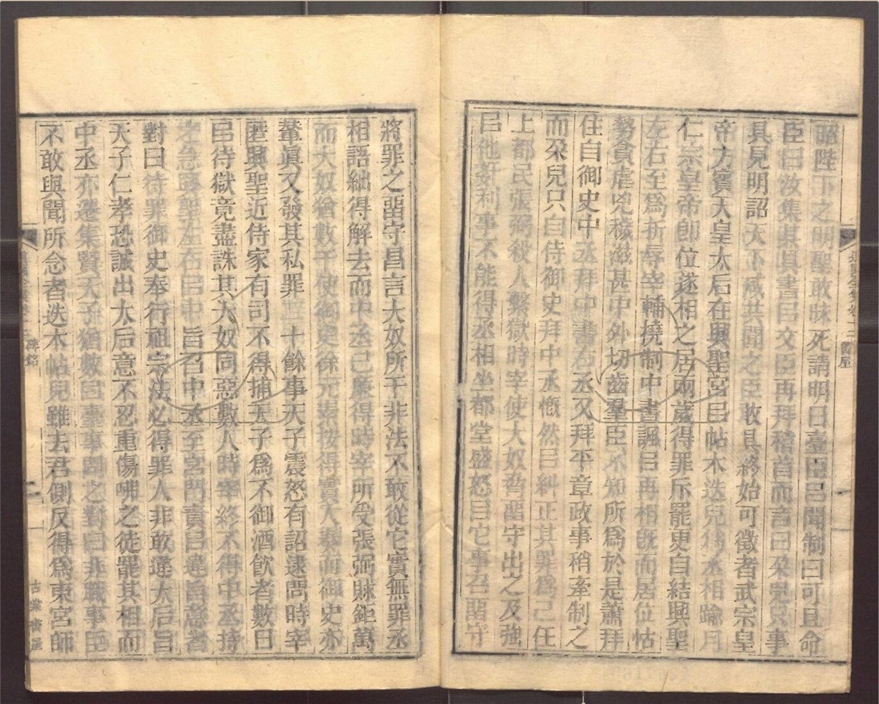 昭陛下之明聖敢昧死請明日臺臣㠯聞制曰可且命
臣曰汝集其具書㠯文臣再拜稽首而言曰朶兒只事
具見明詔天下咸共聞之臣敢具終始可徵者武宗皇
帝方賓天皇太后在興聖宮㠯帖木迭兒爲丞相踰月
仁宗皇帝卽位遂相之居兩歲得罪斥罷更自結興聖
左右至爲折辱宰輔撓制中書諷㠯再相旣而居位怙
勢貪虐兇穢滋甚中外切齒羣臣不知所爲於是蕭拜
住自御史中丞拜中書右丞又拜平章政事稍牽制之
而朶兒只自侍御史拜中丞慨然㠯糾正其罪爲己任
上都民張弼殺人繫獄時宰使大奴脅畱守出之及強
㠯他奸利事不能得丞相坐都堂盛怒㠯它事召畱守
將罪之畱守昌言大奴所干非法不敢從它實無罪丞
相語絀得解去而中丞已廉得時宰所受張弼賕鉅萬
而大奴猶數千使御史徐元素按得實入奏而御史亦
輦眞又發其私罪二十餘事天子震怒有詔逮問時宰
匿興聖近侍家有司不得捕天子爲不御酒飲者數日
㠯待獄竟盡誅其大奴同惡數人時宰終不得中丞持
之急興聖左右㠯中旨召中丞至宮門責㠯違旨意者
對曰待罪御史奉行祖宗法必得罪人非敢違太后旨
天子仁孝恐誠出太后意不忍重傷咈之徒罷其相而
中丞亦遷集賢天子猶數㠯臺事問之對曰非職事臣
不敢與聞所念者迭木帖兒雖去君側反得爲東宮師
碑銘
古棠書屋